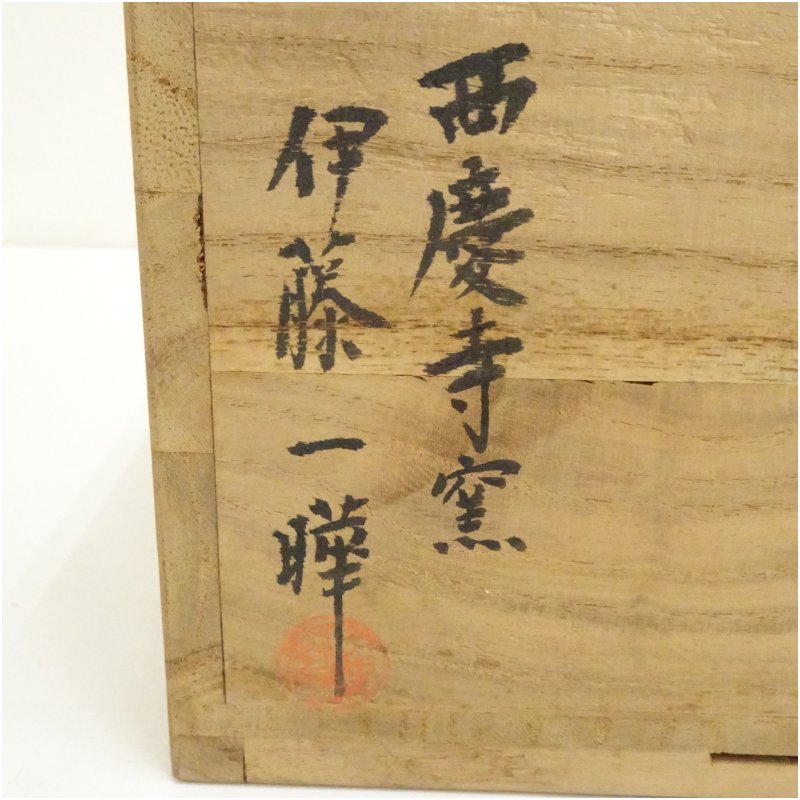 西慶寺窯
伊藤一曄